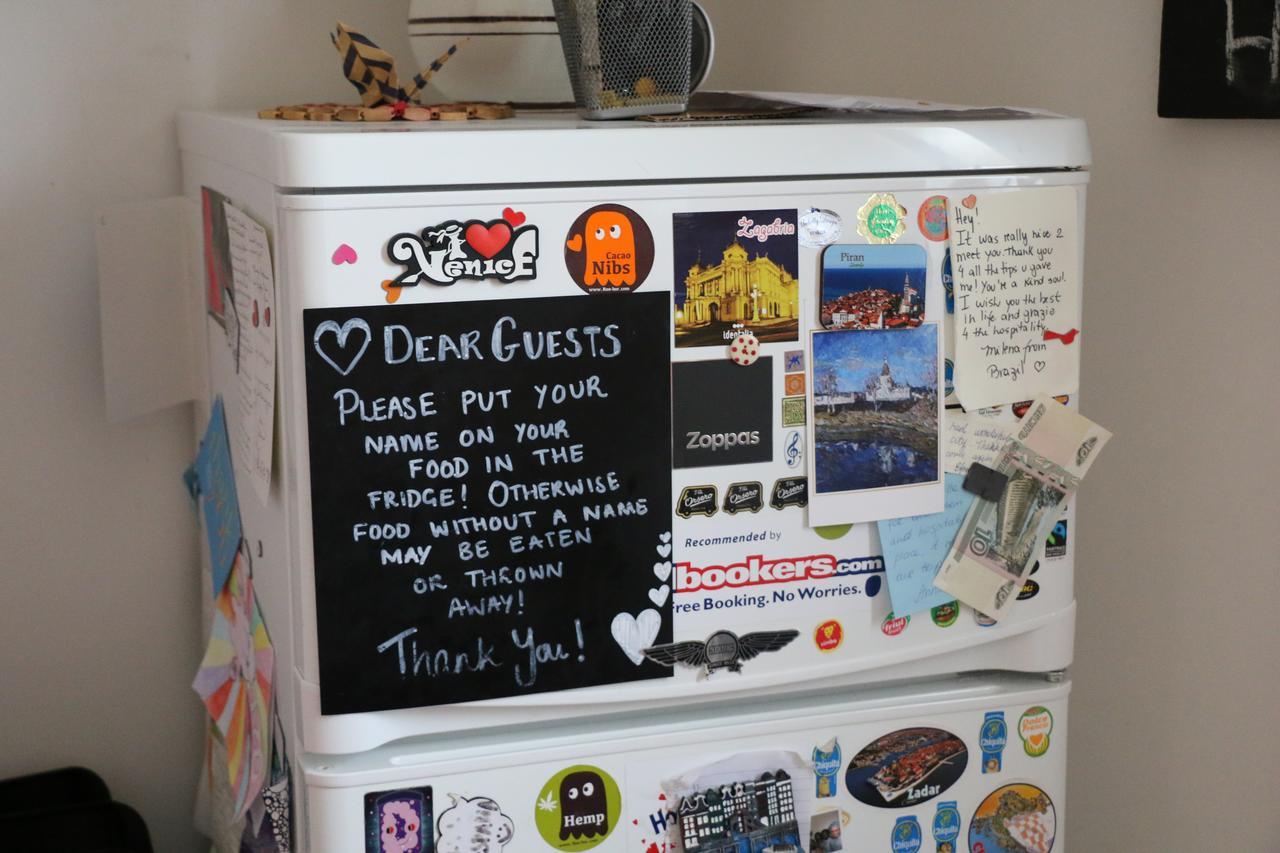 I
Venice
Cacao
Nibs
Zagabria
identalia
Piran
Hey!
It was really nice 2
meet you. Thank you
4 all the tips u gave
me! You're a kind soul.
I wish you the best
in life and grazie
4 the hospitality
Milena from
Brazil
DEAR GUESTS
PLEASE PUT YOUR
NAME ON YOUR
FOOD IN THE
FRIDGE! OTHERWISE
FOOD WITHOUT A NAME
MAY BE EATEN
OR THROWN
AWAY!
Thank You!
Zoppas
Orsero
Orsero
Orsero
10
Recommended by
bookers.com
Free Booking. No Worries.
Chiquita
Dolce
Fresco
Chiquita
Zadar
Hemp
Chiquita
Chiquita